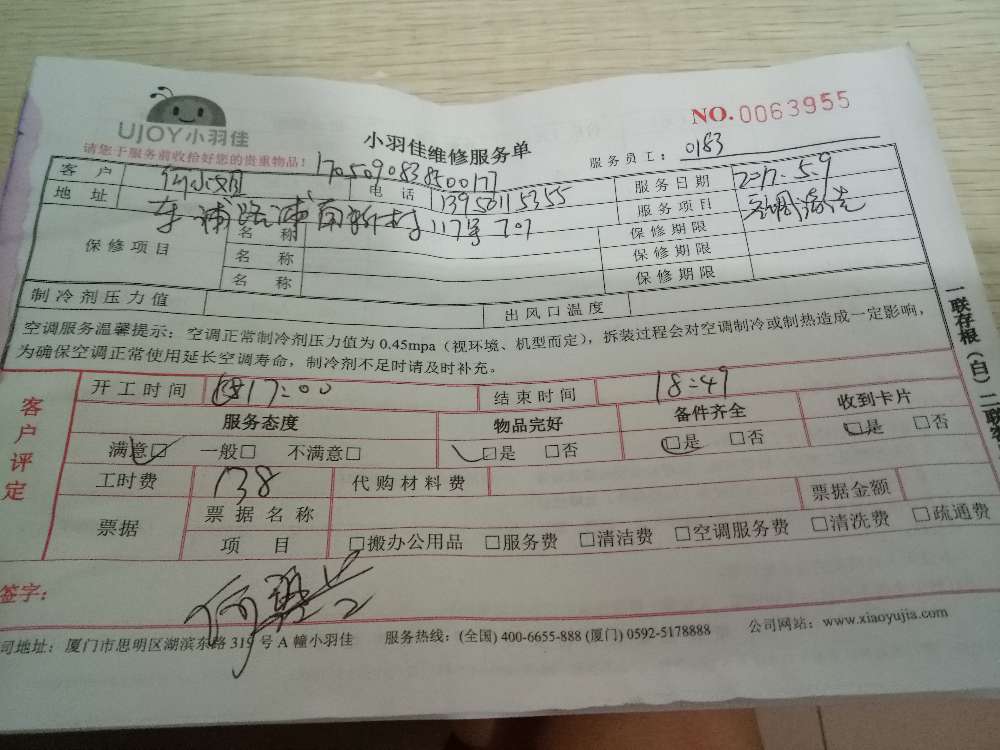 UJOY小羽佳
NO.0063955
请您于服务前收拾好您的贵重物品！
小羽佳维修服务单
服务员工： 0183
1705090838500177
客 户 何小姐 电 话 服务日期 2017.5.9
地 址 东浦路浦南新村117号707 服务项目 空调清洗
保修项目 名 称 保修期限
名 称 保修期限
名 称 保修期限
制冷剂压力值 出风口温度
空调服务温馨提示：空调正常制冷剂压力值为 0.45mpa（视环境、机型而定），拆装过程会对空调制冷或制热造成一定影响，
为确保空调正常使用延长空调寿命，制冷剂不足时请及时补充。
一联存根（白）二联
客户评定
开工时间 17:00 结束时间 18:49
服务态度 物品完好 备件齐全 收到卡片
满意☑ 一般□ 不满意□ □是 □否 □是 □否 □是 □否
工时费 138 代购材料费
票据 票据名称 票据金额
项 目 □搬办公用品 □服务费 □清洁费 □空调服务费 □清洗费 □疏通费
签字：
司地址：厦门市思明区湖滨东路 319 号 A 幢小羽佳 服务热线：(全国) 400-6655-888 (厦门) 0592-5178888 公司网站：www.xiaoyujia.com